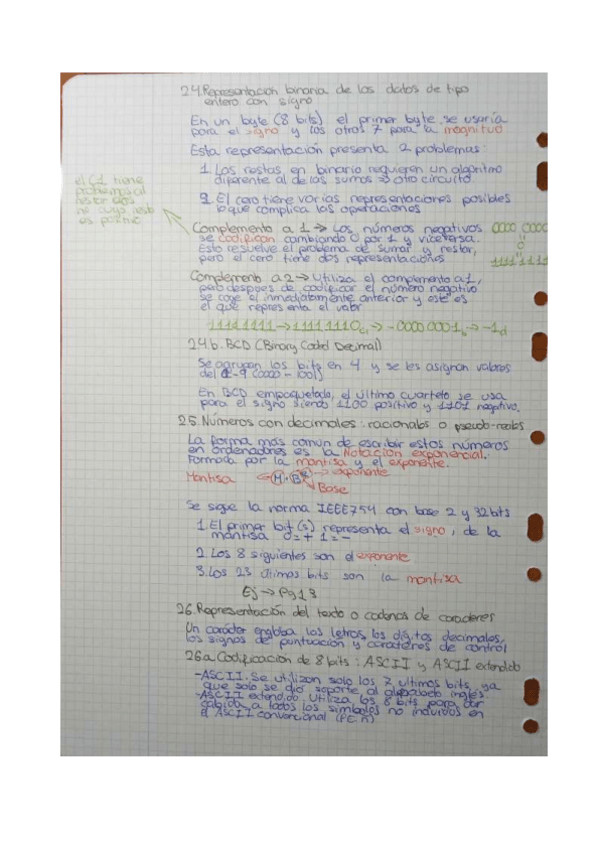 2.4. Representación binaria de los datos de tipo
entero con signo
En un byte (8 bits) el primer byte se usaría
para el signo y los otros 7 para la magnitud
Esta representación presenta 2 problemas:
1. Las restas en binario requieren un algoritmo
diferente al de las sumas => otro circuito.
2. El cero tiene varias representaciones posibles
lo que complica las operaciones
el C1 tiene
problemas al
restar
no cuyo resto
es positivo
Complemento a 1 -> Los números negativos
se codifican cambiando 0 por 1 y viceversa.
Esto resuelve el problema de sumar y restar,
pero el cero tiene dos representaciones
0000 0000
=
0
=
1111 1111
Complemento a 2 -> Utiliza el complemento a 1,
pero después de codificar el número negativo
se coge el inmediatamente anterior y este es
el que representa el valor
11111111 -> 11111110 -> -00000001 -> -1d
2.4.b. BCD (Binary Coded Decimal)
Se agrupan los bits en 4 y se les asignan valores
del 0-9 (0000 - 1001)
En BCD empaquetado, el último cuarteto se usa
para el signo siendo 1100 positivo y 1101 negativo.
2.5. Números con decimales: racionales o pseudo-reales
La forma más común de escribir estos números
en ordenadores es la Notación exponencial.
Formada por la mantisa y el exponente.
Mantisa <- M · B -> exponente
Base
Se sigue la norma IEEE754 con base 2 y 32 bits
1. El primer bit (s) representa el signo, de la
mantisa 0=+ 1=-
2. Los 8 siguientes son el exponente
3. Los 23 últimos bits son la mantisa
Ej -> Pg 13
2.6. Representación del texto o cadenas de caracteres
Un carácter engloba las letras, los dígitos decimales,
los signos de puntuación y caracteres de control
2.6.a. Codificación de 8 bits: ASCII y ASCII extendido
-ASCII. Se utilizan solo los 7 ultimos bits, ya
que solo se dio soporte al alphabeto inglés.
-ASCII extendido. Utiliza los 8 bits para dar
cabida a todos los simbolos no incluidos en
el ASCII convencional (P.E. ñ)